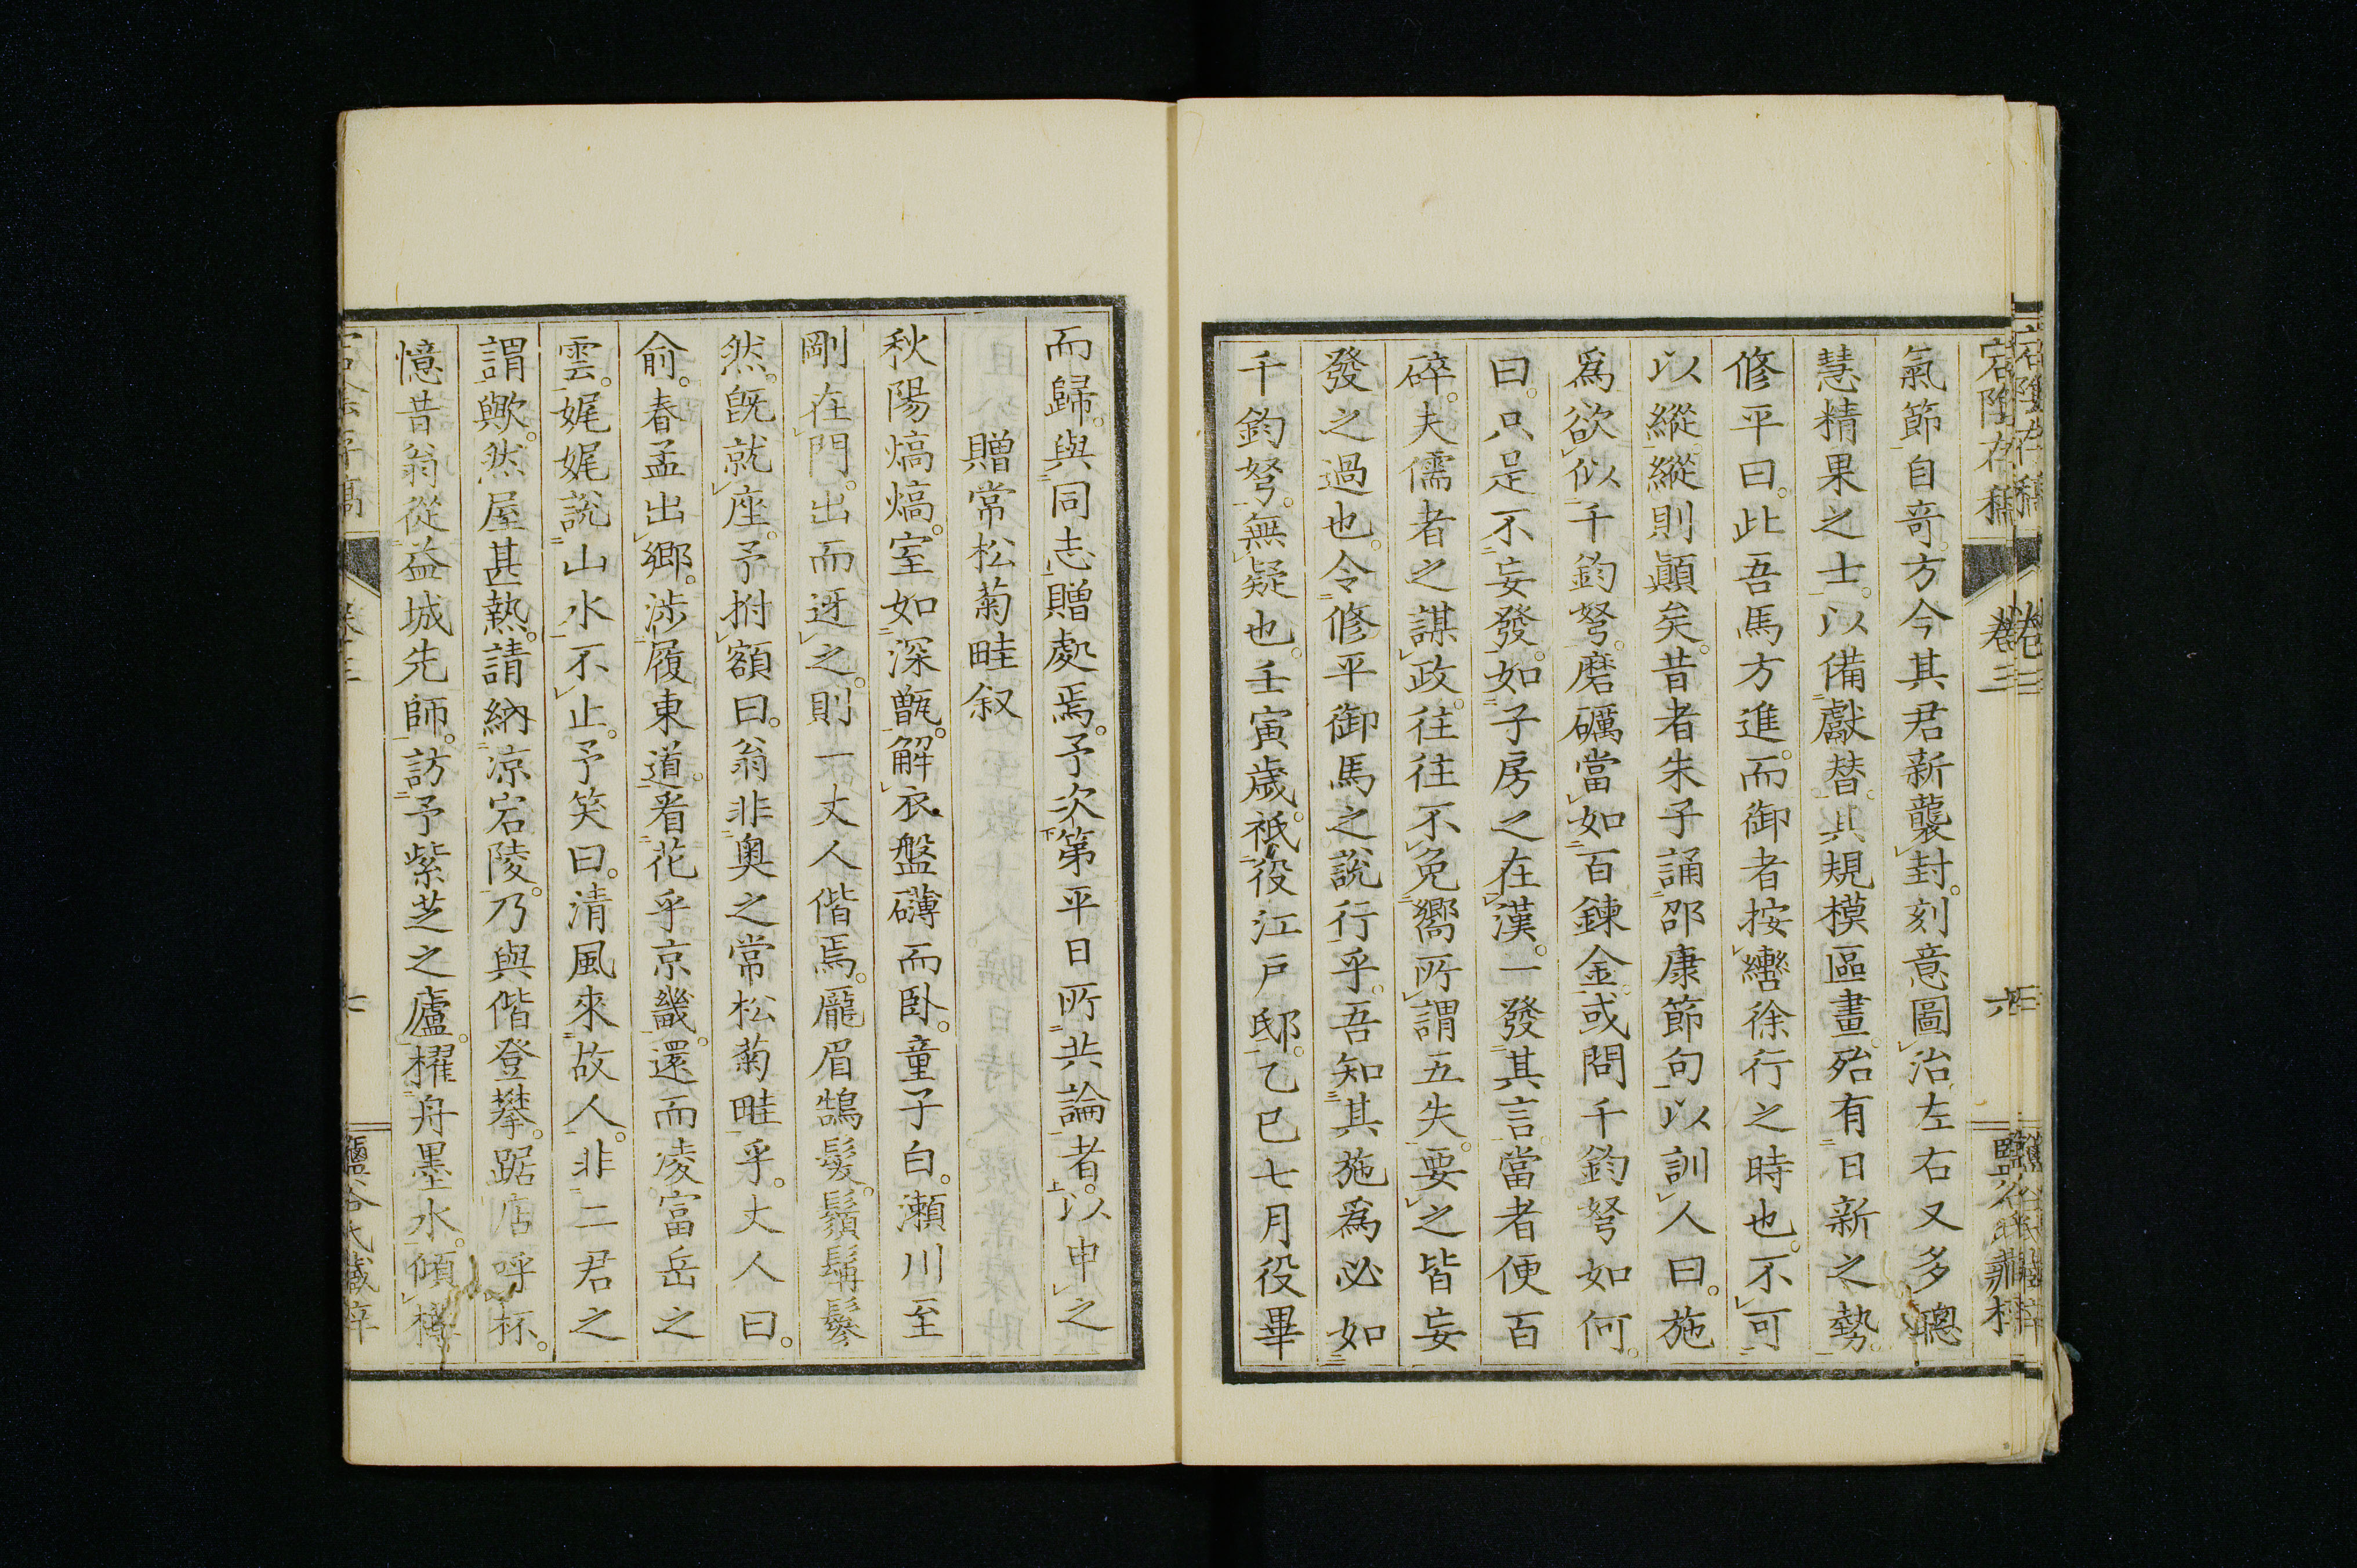 宕陰存稿 卷三 六
氣節自奇。方今其君新襲封。刻意圖治。左右又多聰
慧精果之士。以備獻替。其規模區畫。殆有日新之勢。
修平曰。此吾馬方進。而御者按轡徐行之時也。不可
以縱。縱則顚矣。昔者朱子誦邵康節句。以訓人曰。施
爲欲似千鈞弩。磨礪當如百鍊金。或問千鈞弩如何。
曰。只是不妄發。如子房之在漢。一發其言。當者便百
碎。夫儒者之謀政。往往不免嚮所謂五失。要之皆妄
發之過也。令修平御馬之說行乎。吾知其施爲必如
千鈞弩。無疑也。壬寅歲。祗役江戶邸。乙巳七月役畢
而歸。與同志贈處焉。予次第平日所共論者。以申之
贈常松菊畦叙
秋陽熇熇。室如深甑。解衣盤礴而臥。童子白。瀨川至
剛在門。出而迓之。則一丈人偕焉。龎眉鵠髮。鬚髯鬖
然。旣就座。予拊額曰。翁非奧之常松菊畦乎。丈人曰。
俞。春孟出鄉。涉履東道。看花乎京畿。還而凌富岳之
雲。娓娓說山水不止。予笑曰。清風來故人。非二君之
謂歟。然屋甚熱。請納凉宕陵。乃與偕登攀。踞店呼杯。
憶昔翁從益城先師。訪予紫芝之廬。櫂舟墨水。傾樽
卷三